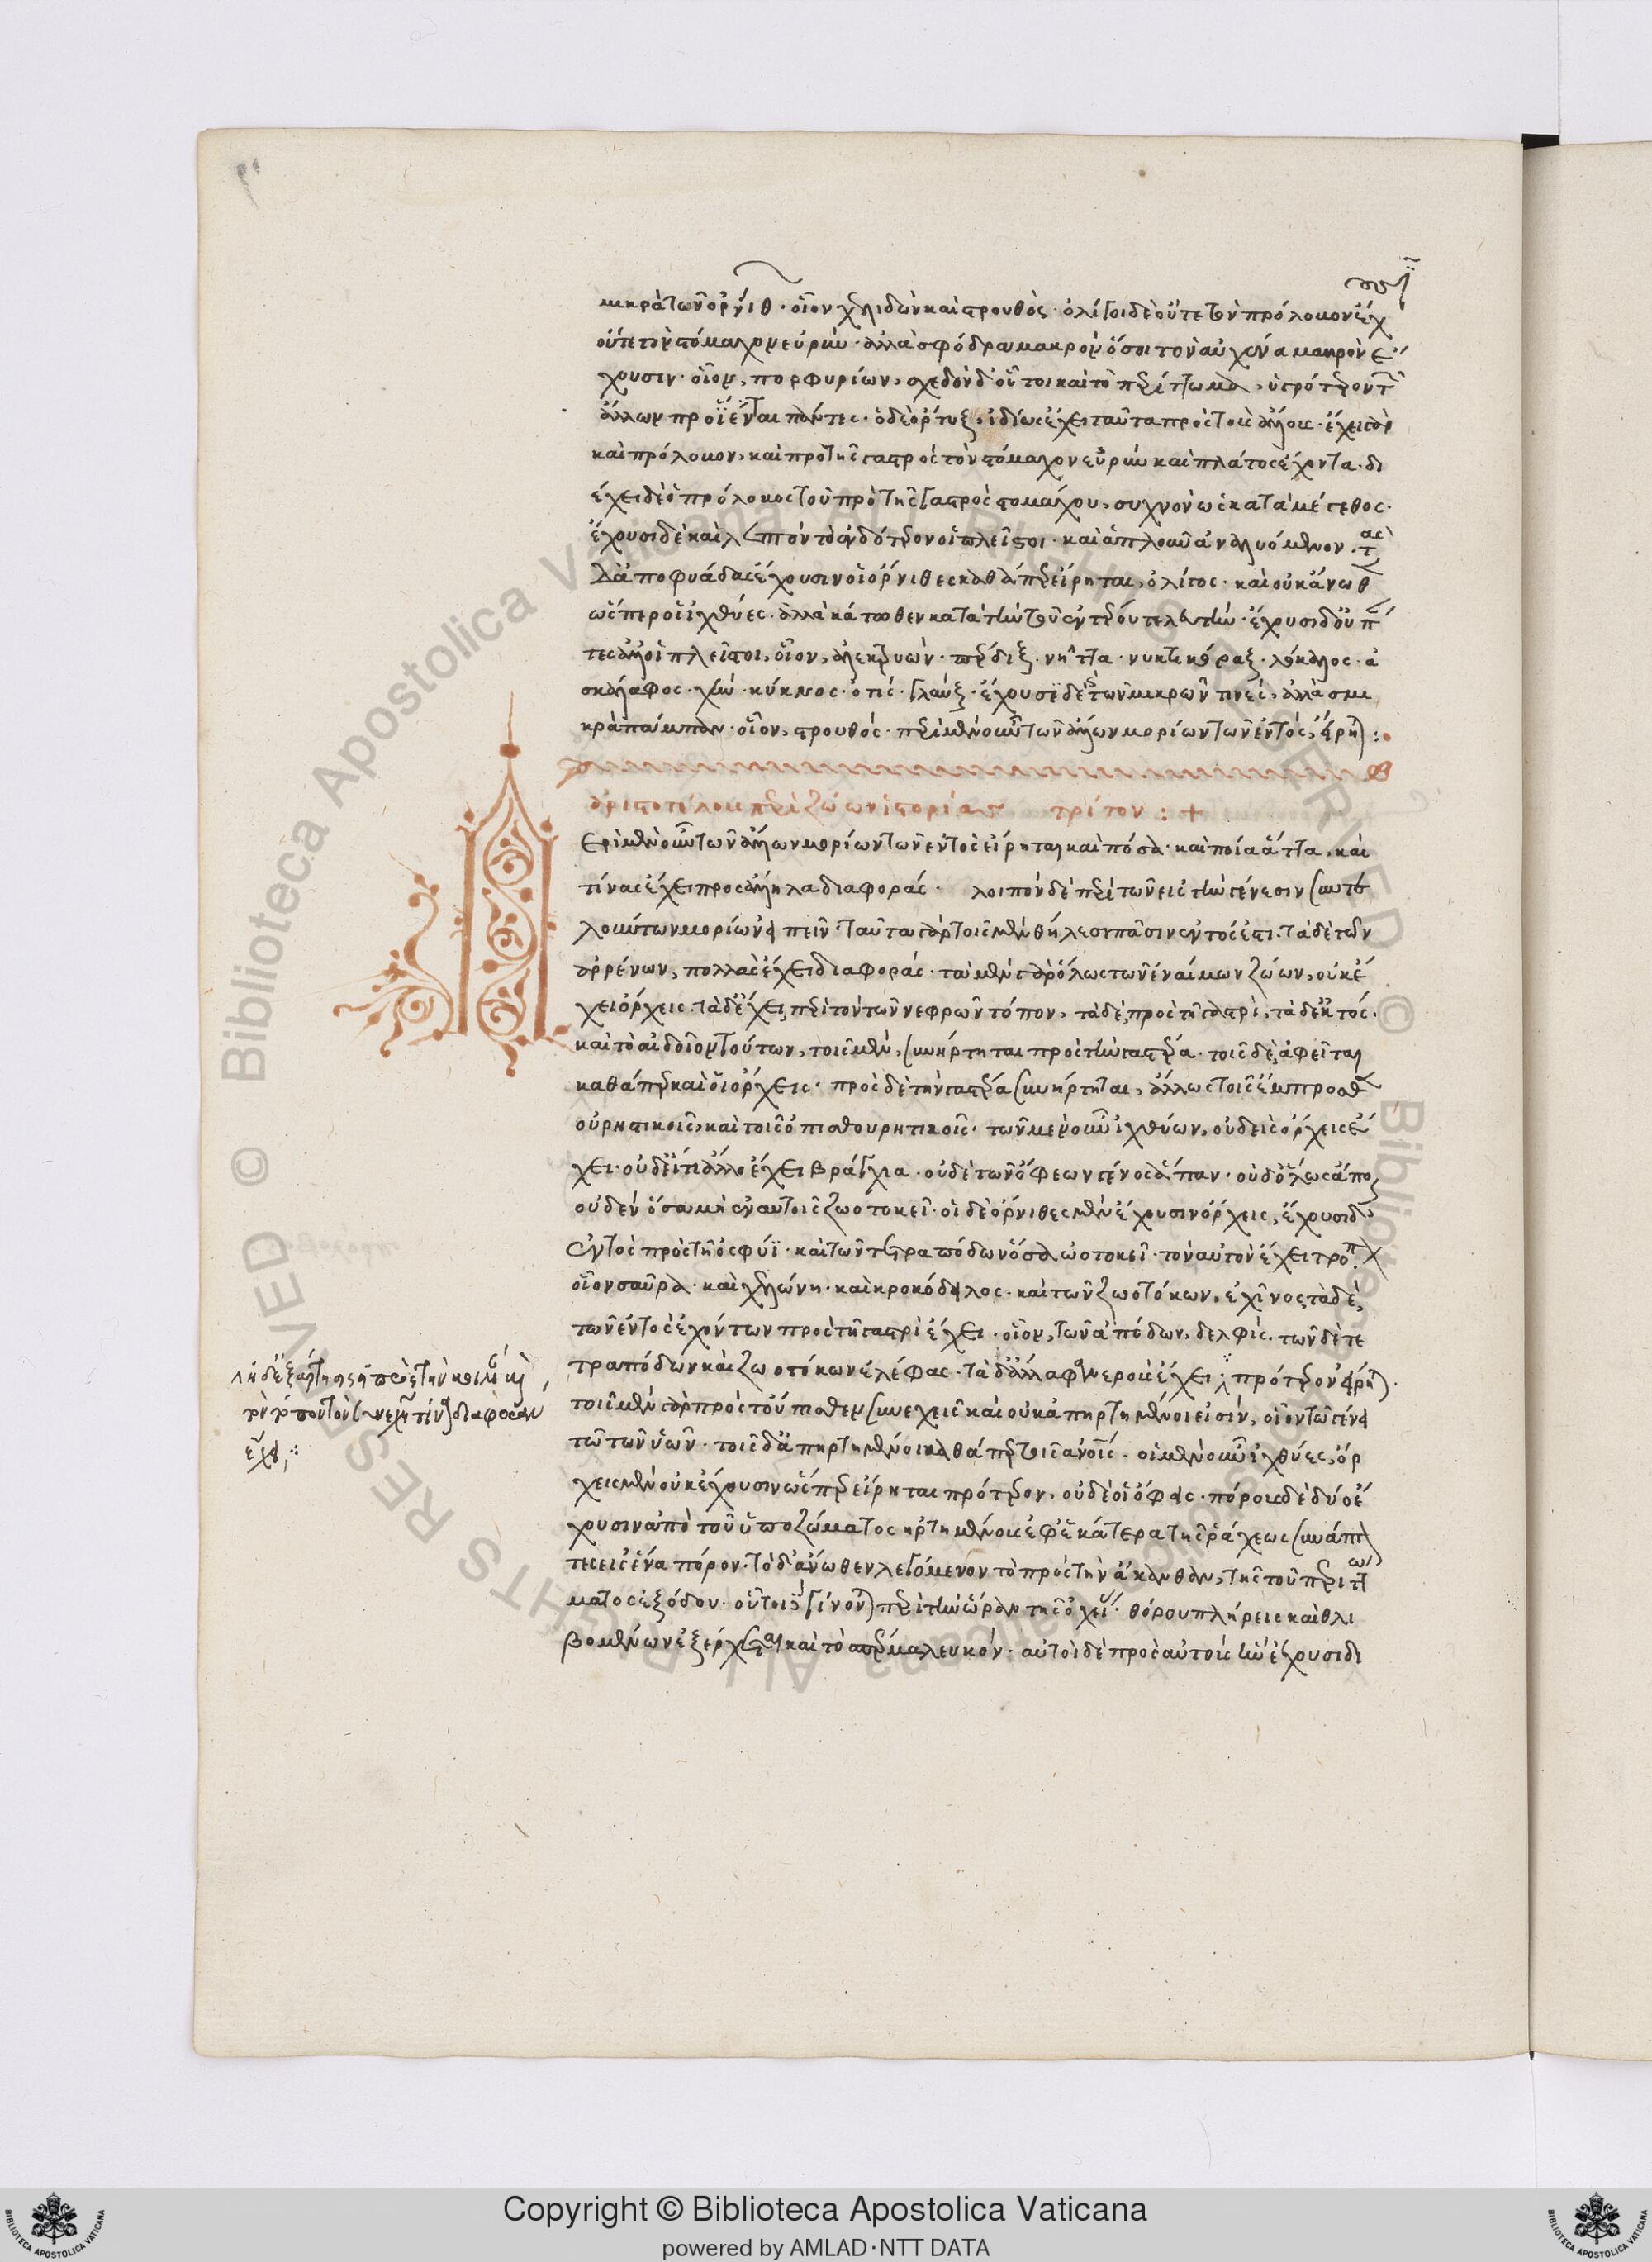 μικρὰ τῶν ὀρνίθ· οἷον χελιδὼν καὶ στρουθός· ὀλίγοι δὲ οὔτε τὸν πρόλοβον ἔχ
οὔτε τὸν στόμαχον εὐρύν· ἀλλὰ σφόδρα μακρόν ὅσοι τὸν αὐχένα μακρὸν ἔ
χουσιν· οἷον, πορφυρίων, σχεδὸν δ' οὗτοι καὶ τὸ περίττωμα, ὑγρότερον τῶν
ἄλλων προΐενται πάντες· ὁ δὲ ὄρτυξ, ἰδίως ἔχει ταῦτα πρὸς τοὺς ἄλλους· ἔχει γὰρ
καὶ πρόλοβον, καὶ πρὸ τῆς γαστρὸς τὸν στόμαχον εὐρὺν καὶ πλάτος ἔχοντα· δι
έχει δὲ ὁ πρόλοβος τοῦ πρὸ τῆς γαστρὸς στομάχου, συχνὸν ὡς κατὰ μέγεθος·
ἔχουσι δὲ καὶ λεπτὸν τὸ ἐνδότερον οἱ πλεῖστοι· καὶ ἁπλοῦν ἀναλυόμενον· τὰς
δὲ ἀποφυάδας ἔχουσιν οἱ ὄρνιθες καθάπερ εἴρηται, ὀλίγας· καὶ οὐκ ἄνωθεν
ὥσπερ οἱ ἰχθύες· ἀλλὰ κάτωθεν κατὰ τὴν τοῦ ἐντέρου τελευτήν· ἔχουσι δ' οὐ πάν
τες ἀλλ' οἱ πλεῖστοι, οἷον, ἀλεκτρυών· πέρδιξ· νῆττα· νυκτικόραξ· λόκαλος· ἀ
σκάλαφος· χήν· κύκνος· ὠτίς· γλαύξ· ἔχουσι δὲ τῶν μικρῶν τινές, ἀλλὰ σμι
κρὰ πάμπαν· οἷον, στρουθός· περὶ μὲν οὖν τῶν ἄλλων μορίων τῶν ἐντός, εἴρηται :
ἀριστοτέλους περὶ ζώων ἱστορίας τρίτον : +
Περὶ μὲν οὖν τῶν ἄλλων μορίων τῶν ἐντὸς εἴρηται καὶ πόσα· καὶ ποῖα ἄττα, καὶ
τίνας ἔχει πρὸς ἄλληλα διαφοράς· λοιπὸν δὲ περὶ τῶν εἰς τὴν γένεσιν συντε
λούντων μορίων εἰπεῖν· ταῦτα γὰρ τοῖς μὲν θήλεσι πᾶσιν ἐντός ἐστι· τὰ δὲ τῶν
ἀρρένων, πολλὰς ἔχει διαφοράς· τὰ μὲν γὰρ ὅλως τῶν ἐναίμων ζώων, οὐκ ἔ
χει ὄρχεις· τὰ δ' ἔχει, περὶ τὸν τῶν νεφρῶν τόπον, τὰ δὲ, πρὸς τῇ γαστρί, τὰ δ' ἐκτός·
καὶ τὸ αἰδοῖον τούτων, τοῖς μὲν, συνήρτηται πρὸς τὴν γαστέρα· τοῖς δὲ, ἀφεῖται
καθάπερ καὶ οἱ ὄρχεις· πρὸς δὲ τὴν γαστέρα συνήρτηται, ἄλλως τοῖς ἔμπροσθεν
οὐρητικοῖς, καὶ τοῖς ὀπισθουρητικοῖς· τῶν μὲν οὖν ἰχθύων, οὐδεὶς ὄρχεις ἔ
χει· οὐδ' εἴ τι ἄλλο ἔχει βράγχια· οὐδὲ τῶν ὄφεων γένος ἅπαν· οὐδ' ὅλως ἄπουν
οὐδέν ὅσα μὴ ἐν αὑτοῖς ζωοτοκεῖ· οἱ δὲ ὄρνιθες μὲν ἔχουσιν ὄρχεις, ἔχουσι δ'
ἐντὸς πρὸς τῇ ὀσφύϊ· καὶ τῶν τετραπόδων ὅσα ὠοτοκεῖ· τὸν αὐτὸν ἔχει τρόπον·
οἷον σαῦρα· καὶ χελώνη· καὶ κροκόδειλος· καὶ τῶν ζωοτόκων, ἐχῖνος, τὰ δὲ,
τῶν ἐντὸς ἐχόντων πρὸς τῇ γαστρὶ ἔχει· οἷον, τῶν ἀπόδων, δελφίς· τῶν δὲ τε
τραπόδων καὶ ζωοτόκων ἐλέφας· τὰ δ' ἄλλα φανεροὺς ἔχει· πρότερον εἴρηται·
τοῖς μὲν γὰρ πρὸς τοὔπισθεν συνεχεῖς καὶ οὐκ ἀπηρτημένοι εἰσίν, οἷον τῷ γένει
τῷ τῶν ὑῶν· τοῖς δ' ἀπηρτημένοι καθάπερ τοῖς ἀνοῖς· οἱ μὲν οὖν ἰχθύες, ὄρ
χεις μὲν οὐκ ἔχουσιν ὥσπερ εἴρηται πρότερον, οὐδὲ οἱ ὄφεις· πόρους δὲ δύο ἔ
χουσιν ἀπὸ τοῦ ὑποζώματος ἠρτημένους ἐφ' ἑκάτερα τῆς ῥάχεως συνάπτον
τας εἰς ἕνα πόρον· τὸ δ' ἄνωθεν λεγόμενον τὸ πρὸς τὴν ἄκανθαν, τῆς τοῦ περιττώ
ματος ἐξόδου· οὗτοι δὲ γίνονται περὶ τὴν ὥραν τῆς ὀχείας· θόρου πλήρεις καὶ θλι
βομένων ἐξέρχεται καὶ τὸ σπέρμα λευκόν· αὐτοὶ δὲ πρὸς αὑτοὺς ἣν ἔχουσι δι